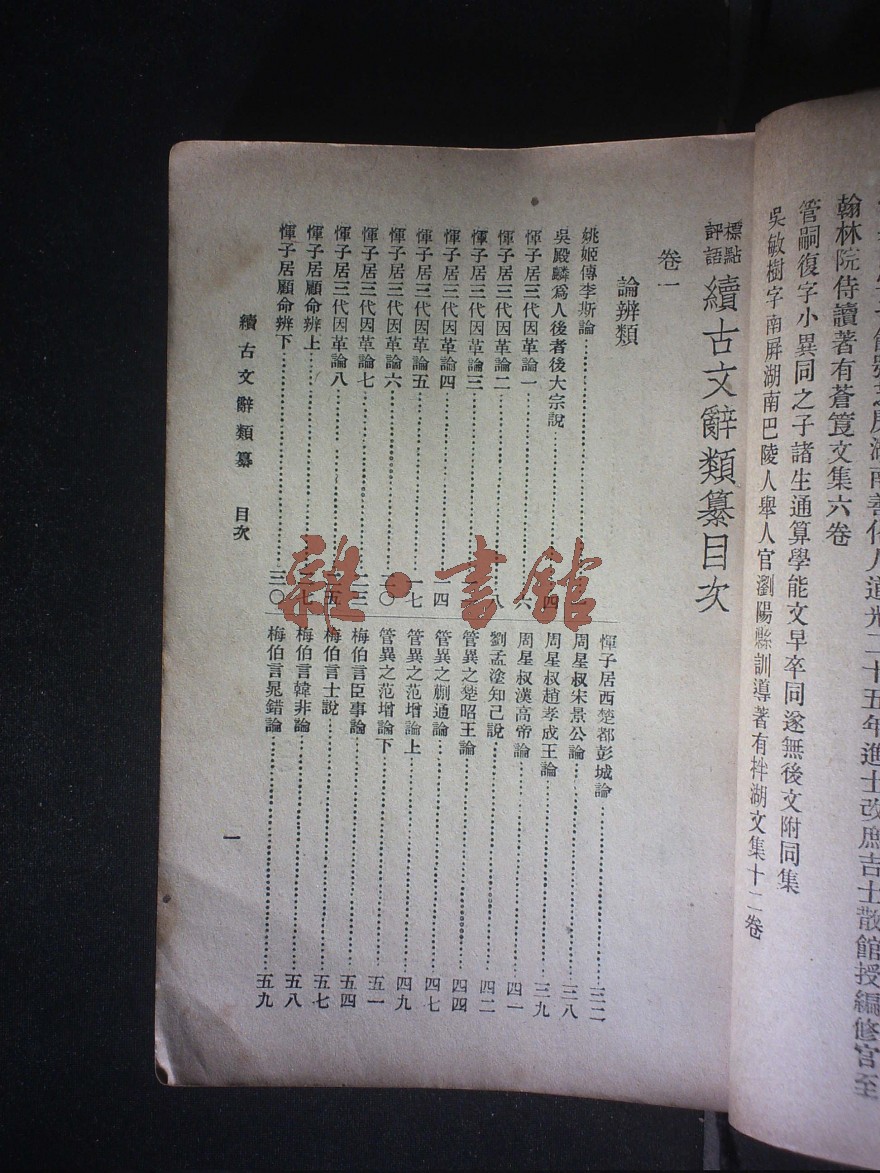 湖南善化人道光二十五年進士改庶吉士散館授編修官至
翰林院侍讀著有蒼筤文集六卷
管嗣復字小異同之子諸生通算學能文早卒同遂無後文附同集
吳敏樹字南屏湖南巴陵人舉人官瀏陽縣訓導著有柈湖文集十二卷
標點評語 續古文辭類纂目次
卷一
論辨類
姚姬傳李斯論
吳殿麟爲人後者後大宗說……四
惲子居三代因革論一……六
惲子居三代因革論二……八
惲子居三代因革論三
惲子居三代因革論四……一四
惲子居三代因革論五……一七
惲子居三代因革論六……二〇
惲子居三代因革論七……二三
惲子居三代因革論八……二五
惲子居顧命辨上……二七
惲子居顧命辨下……三〇
惲子居西楚都彭城論……三二
周星叔宋景公論……三八
周星叔趙孝成王論……三九
周星叔漢高帝論……四一
劉孟塗知己說……四二
管異之楚昭王論……四四
管異之蒯通論……四七
管異之范增論上……四九
管異之范增論下……五一
梅伯言臣事論……五四
梅伯言士說……五七
梅伯言韓非論……五八
梅伯言鼂錯論……五九
續古文辭類纂 目次
一
雜·書館